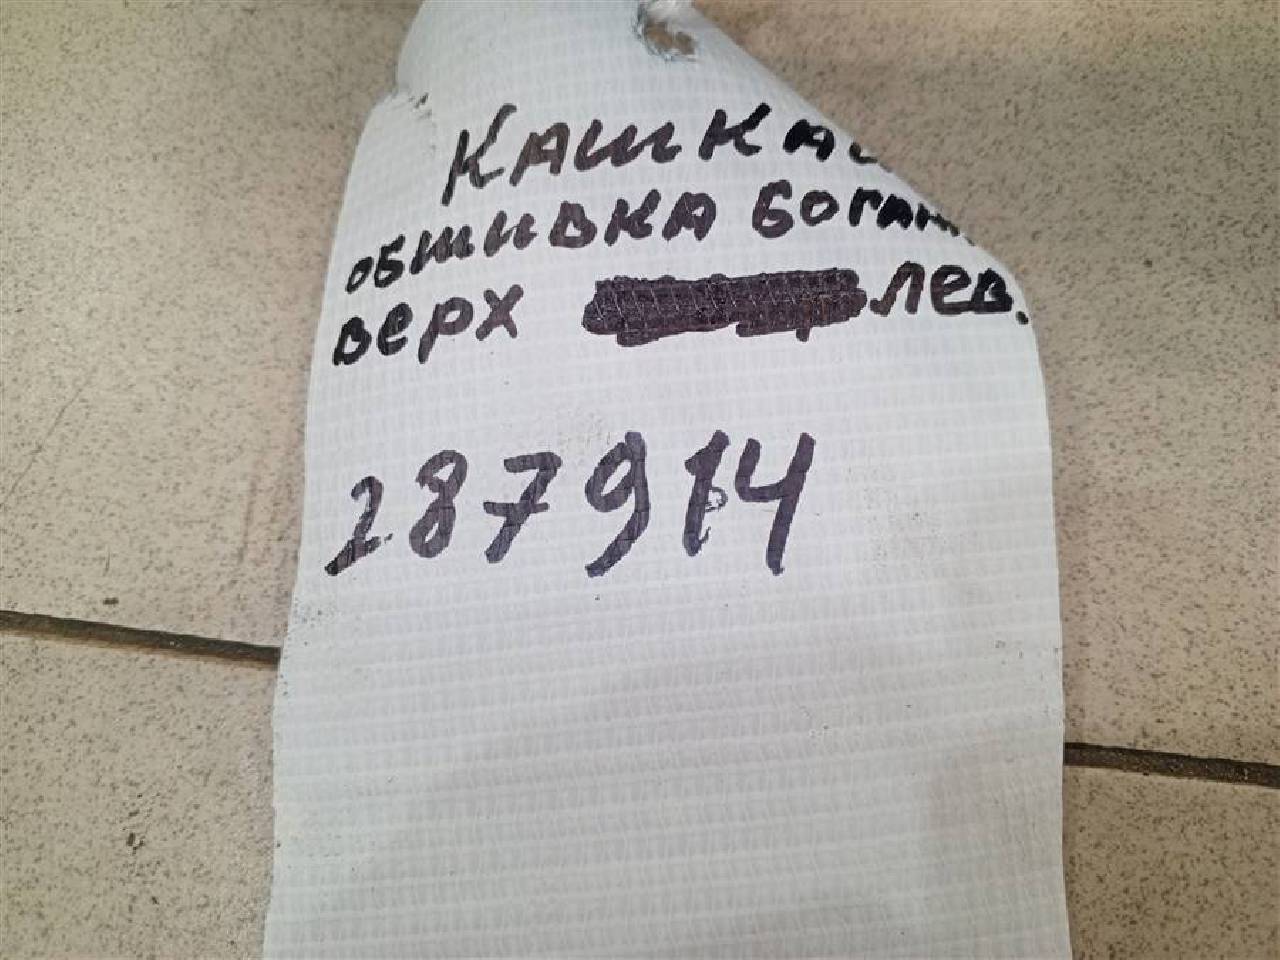 Кашкай
обшивка богаж
верх лев.
287914